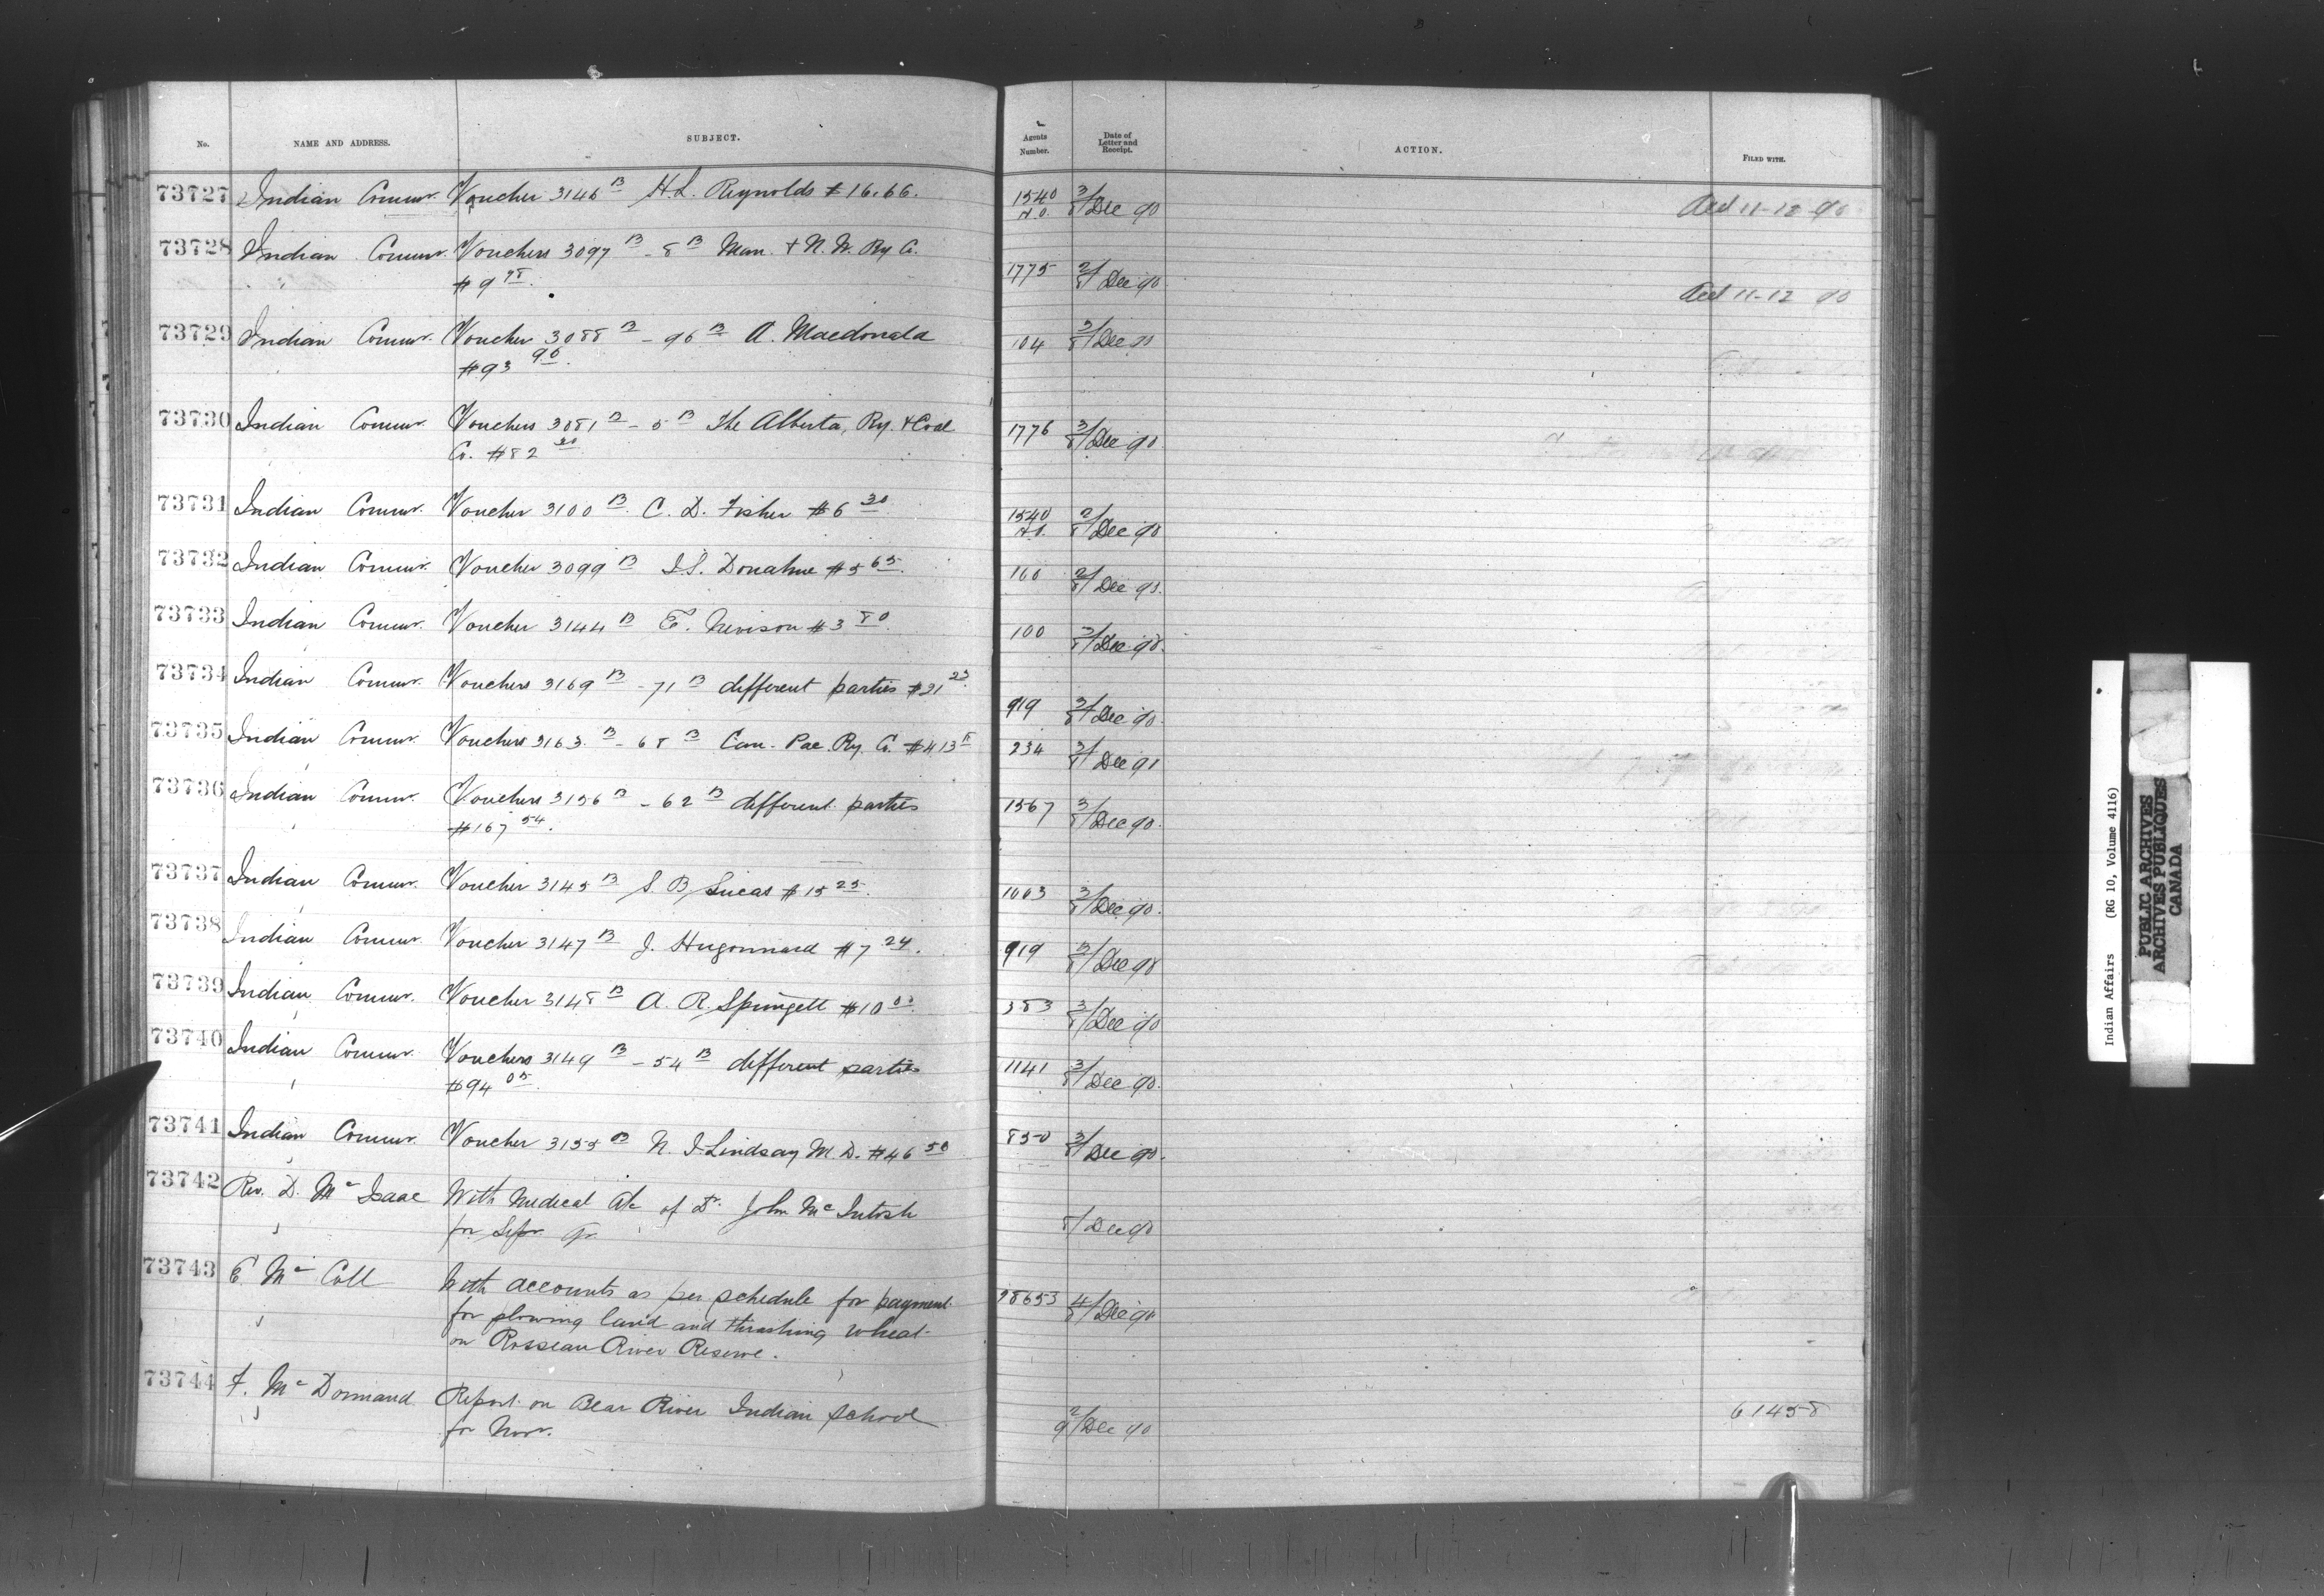 No. NAME AND ADDRESS. SUBJECT. Agents Number. Date of Letter and Receipt. ACTION. FILED WITH.
73727 Indian Commr. Voucher 3146 B H.L. Reynolds $16.66. 1540 H.O. 3/8 Dec 90 Acct 11-12 90
73728 Indian Commr. Vouchers 3097 B - 8 B Man. & N.W. Ry Co. 1775 2/8 Dec 90
$9 98. Acct 11-12 90
73729 Indian Commr. Voucher 3088 B - 96 B A. Macdonald 104 3/8 Dec 90
$93 96.
73730 Indian Commr. Vouchers 3081 B - 5 B The Alberta, Ry. & Coal 1776 3/8 Dec 90
Co. $82
73731 Indian Commr. Voucher 3100 B C. D. Fisher $6 30 1540 H.O. 2/8 Dec 90
73732 Indian Commr. Voucher 3099 B Donahue $5 65. 160 2/8 Dec 90.
73733 Indian Commr. Voucher 3144 B E. Nevison $3 80. 100 3/8 Dec 90.
73734 Indian Commr. Vouchers 3169 B - 71 B different parties $21 25. 919 3/8 Dec 90.
73735 Indian Commr. Vouchers 3163. B - 68 B Can. Pac. Ry. Co. $413 234 3/8 Dec 90
73736 Indian Commr. Vouchers 3156 B - 62 B different parties 1567 3/8 Dec 90.
$167 54.
73737 Indian Commr. Voucher 3145 B S B Lucas $15 25. 1003 3/8 Dec 90.
73738 Indian Commr. Voucher 3147 B J. Hugonnard $7 24. 919 3/8 Dec 90
73739 Indian Commr. Voucher 3148 B A. R. Springett $10 00. 383 3/8 Dec 90
73740 Indian Commr. Vouchers 3149 B - 54 B different parties 1141 3/8 Dec 90.
$94 05.
73741 Indian Commr. Voucher 3155 B N. J Lindsay M.D. $46 50 850 3/8 Dec 90.
73742 Rev. D. Mc Isaac With Medical a/c of Dr. John McIntosh
for Sepr. qr. 8/ Dec 90
73743 E Mc Coll With accounts as per schedule for payment 28653 4/8 Dec 90
for plowing land and thrashing wheat
on Rosseau River Reserve.
73744 F. Mc Dormand Report on Bear River Indian School 2/9 Dec 90 61458
for Novr.
Indian Affairs (RG 10, Volume 4116)
PUBLIC ARCHIVES
ARCHIVES PUBLIQUES
CANADA